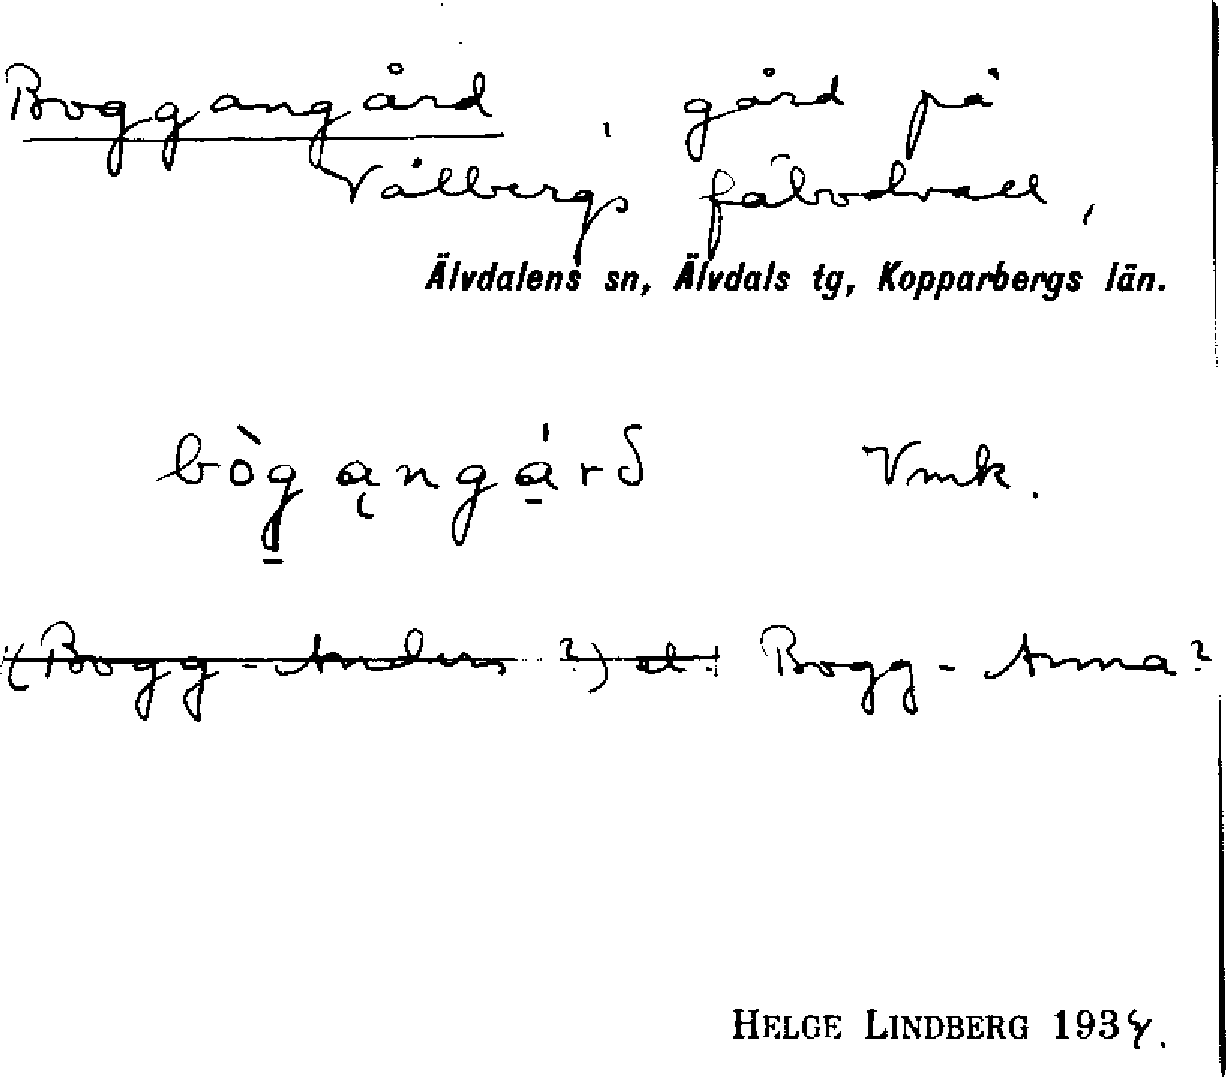 Boggangård, gård på
Vålbergs fäbodvall,
Älvdalens sn, Älvdals tg, Kopparbergs län.
bòg̱ ąngá̱rδ Vmk.
(Bogg-Anders?) el. Bogg-Anna?
HELGE LINDBERG 1934.